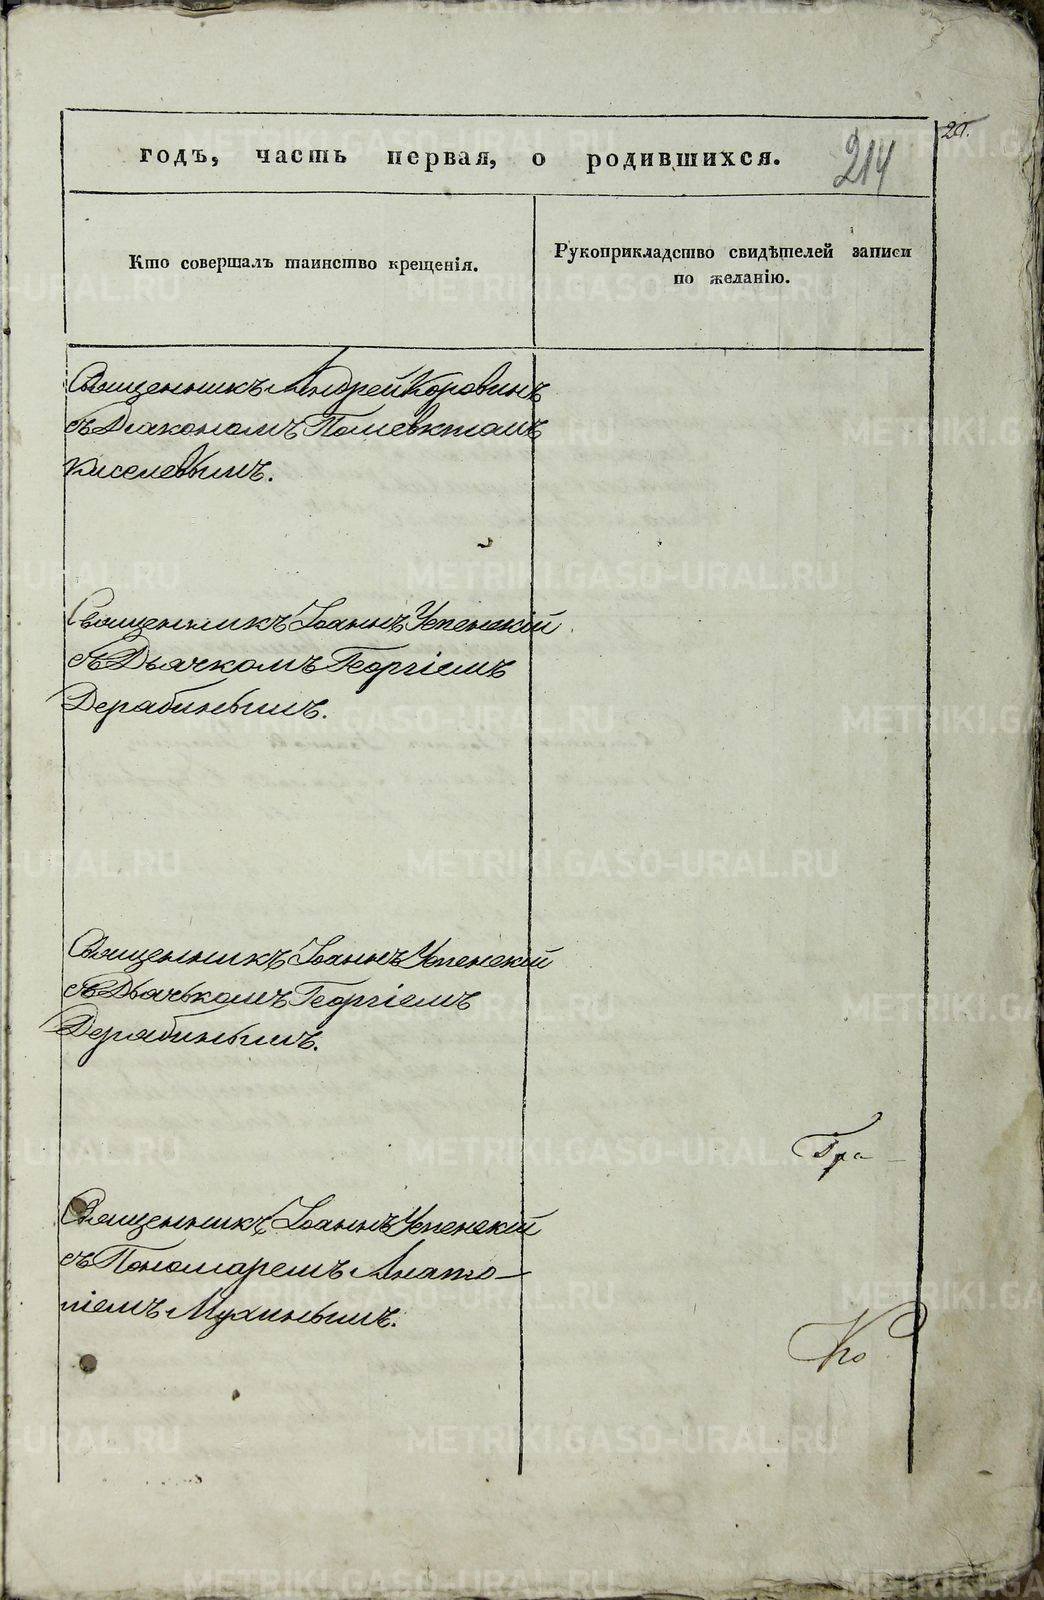 годъ, часть первая, о родившихся.
214
20.
Кто совершалъ таинство крещенія.
Рукоприкладство свидѣтелей записи
по желанію.
Священникъ Андрей Коровинъ
съ Діакономъ Полиевктомъ
Киселевымъ.
Священникъ Іоаннъ Успенскій
съ Дьячкомъ Георгіемъ
Дерябинымъ.
Священникъ Іоаннъ Успенскій
съ Дьячькомъ Георгіемъ
Дерябинымъ.
Гра
Священникъ Іоаннъ Успенскій
съ Пономаремъ Анато-
ліемъ Мухинымъ.
Ко
METRIKI.GASO-URAL.RU